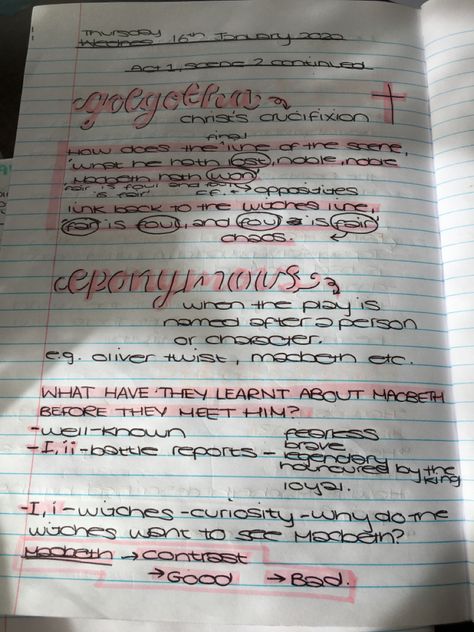 Thursday
Wednes 16th January 2020
Act 1, scene 2 continued
golgotha
christ's crucifixion
final
How does the line of the scene,
'what he hath lost, noble, noble
Macbeth hath won'
→ opposites
is fair
link back to the witches line,
fair is foul, and foul is fair
chaos. ←
eponymous
when the play is
named after a person
or character.
e.g. oliver twist, macbeth etc.
WHAT HAVE THEY LEARNT ABOUT MACBETH
BEFORE THEY MEET HIM?
-well-known fearless
brave
-I, ii-battle reports - legendary
honoured by the king
loyal.
-I, i-witches-curiosity-why do the
witches want to see Macbeth?
Macbeth → contrast
→ Good → Bad.